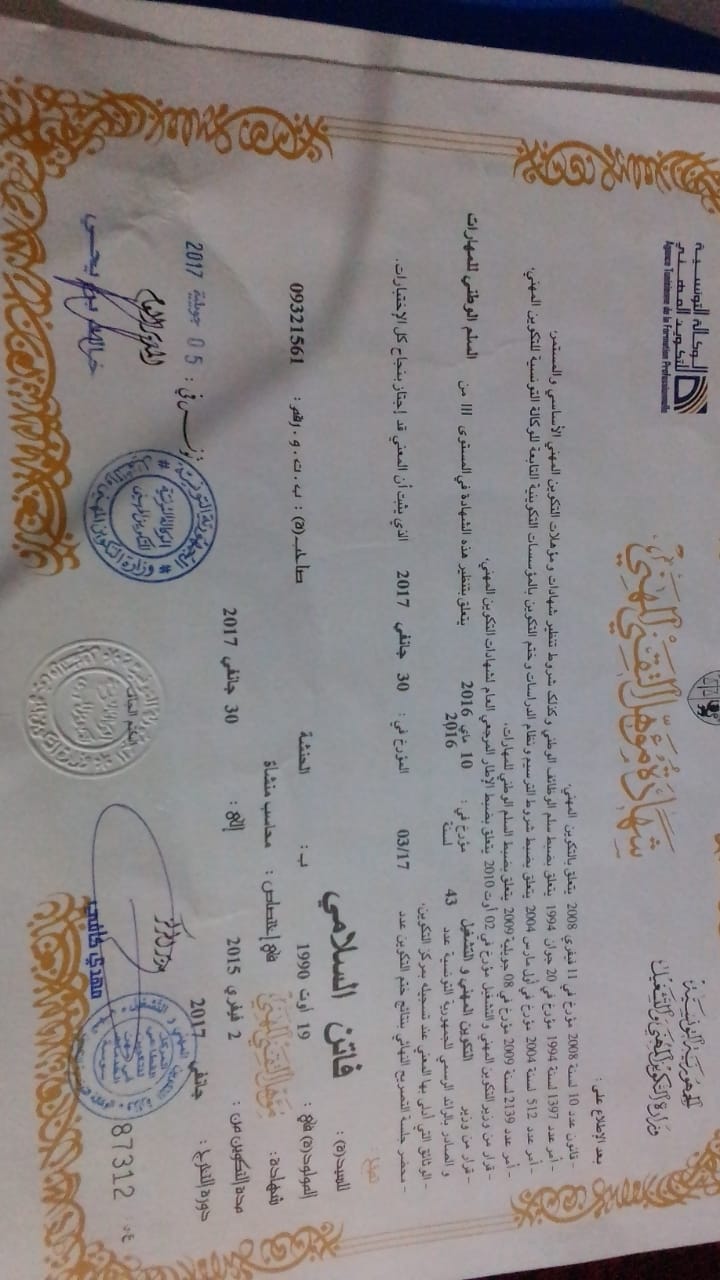 الجمهورية التونسية
وزارة التكوين المهني والتشغيل
الوكالة التونسية
للتكوين المهني
Agence Tunisienne de la Formation Professionnelle
شهادة مؤهل التقني المهني
بعد الإطلاع على :
قانون عدد 10 لسنة 2008 مؤرخ في 11 فيفري 2008 يتعلق بالتكوين المهني.
- أمر عدد 1397 لسنة 1994 مؤرخ في 20 جوان 1994 يتعلق بضبط سلم الوظائف الوطني وكذلك شروط تنظير شهادات ومؤهلات التكوين المهني الأساسي والمستمر.
- أمر عدد 512 لسنة 2004 مؤرخ في أول مارس 2004 يتعلق بضبط شروط الترسيم ونظام الدراسات وختم التكوين بالمؤسسات التكوينية التابعة للوكالة التونسية للتكوين المهني.
- أمر عدد 2139 لسنة 2009 مؤرخ في 08 جويلية 2009 يتعلق بضبط السلم الوطني للمهارات.
- قرار من وزير التكوين المهني والتشغيل مؤرخ في 02 أوت 2010 يتعلق بضبط الإطار المرجعي العام لشهادات التكوين المهني.
- قرار من وزير التكوين المهني و التشغيل مؤرخ في : 10 ماي 2016 يتعلق بتنظير هذه الشهادة في المستوى III من السلم الوطني للمهارات
و الصادر بالرائد الرسمي للجمهورية التونسية عدد 43 لسنة 2016
- الوثائق التي أدلى بها المعني عند تسجيله بمركز التكوين.
- محضر جلسة التصريح النهائي بنتائج ختم التكوين عدد 03/17 المؤرخ في : 30 جانفي 2017 الذي يثبت أن المعني قد إجتاز بنجاح كل الإختبارات.
تمنح
للسيد(ة) : فاتن السلامي
المولود(ة) في : 19 أوت 1990 ب : الحنشة صاحب(ة) : ب.ت.و.رقم : 09321561
شهادة : مؤهل التقني المهني في إختصاص : محاسب منشاة
مدة التكوين من : 2 فيفري 2015 إلى : 30 جانفي 2017
دورة التخرج : جانفي 2017 تونس في : 05 جويلية 2017
87312